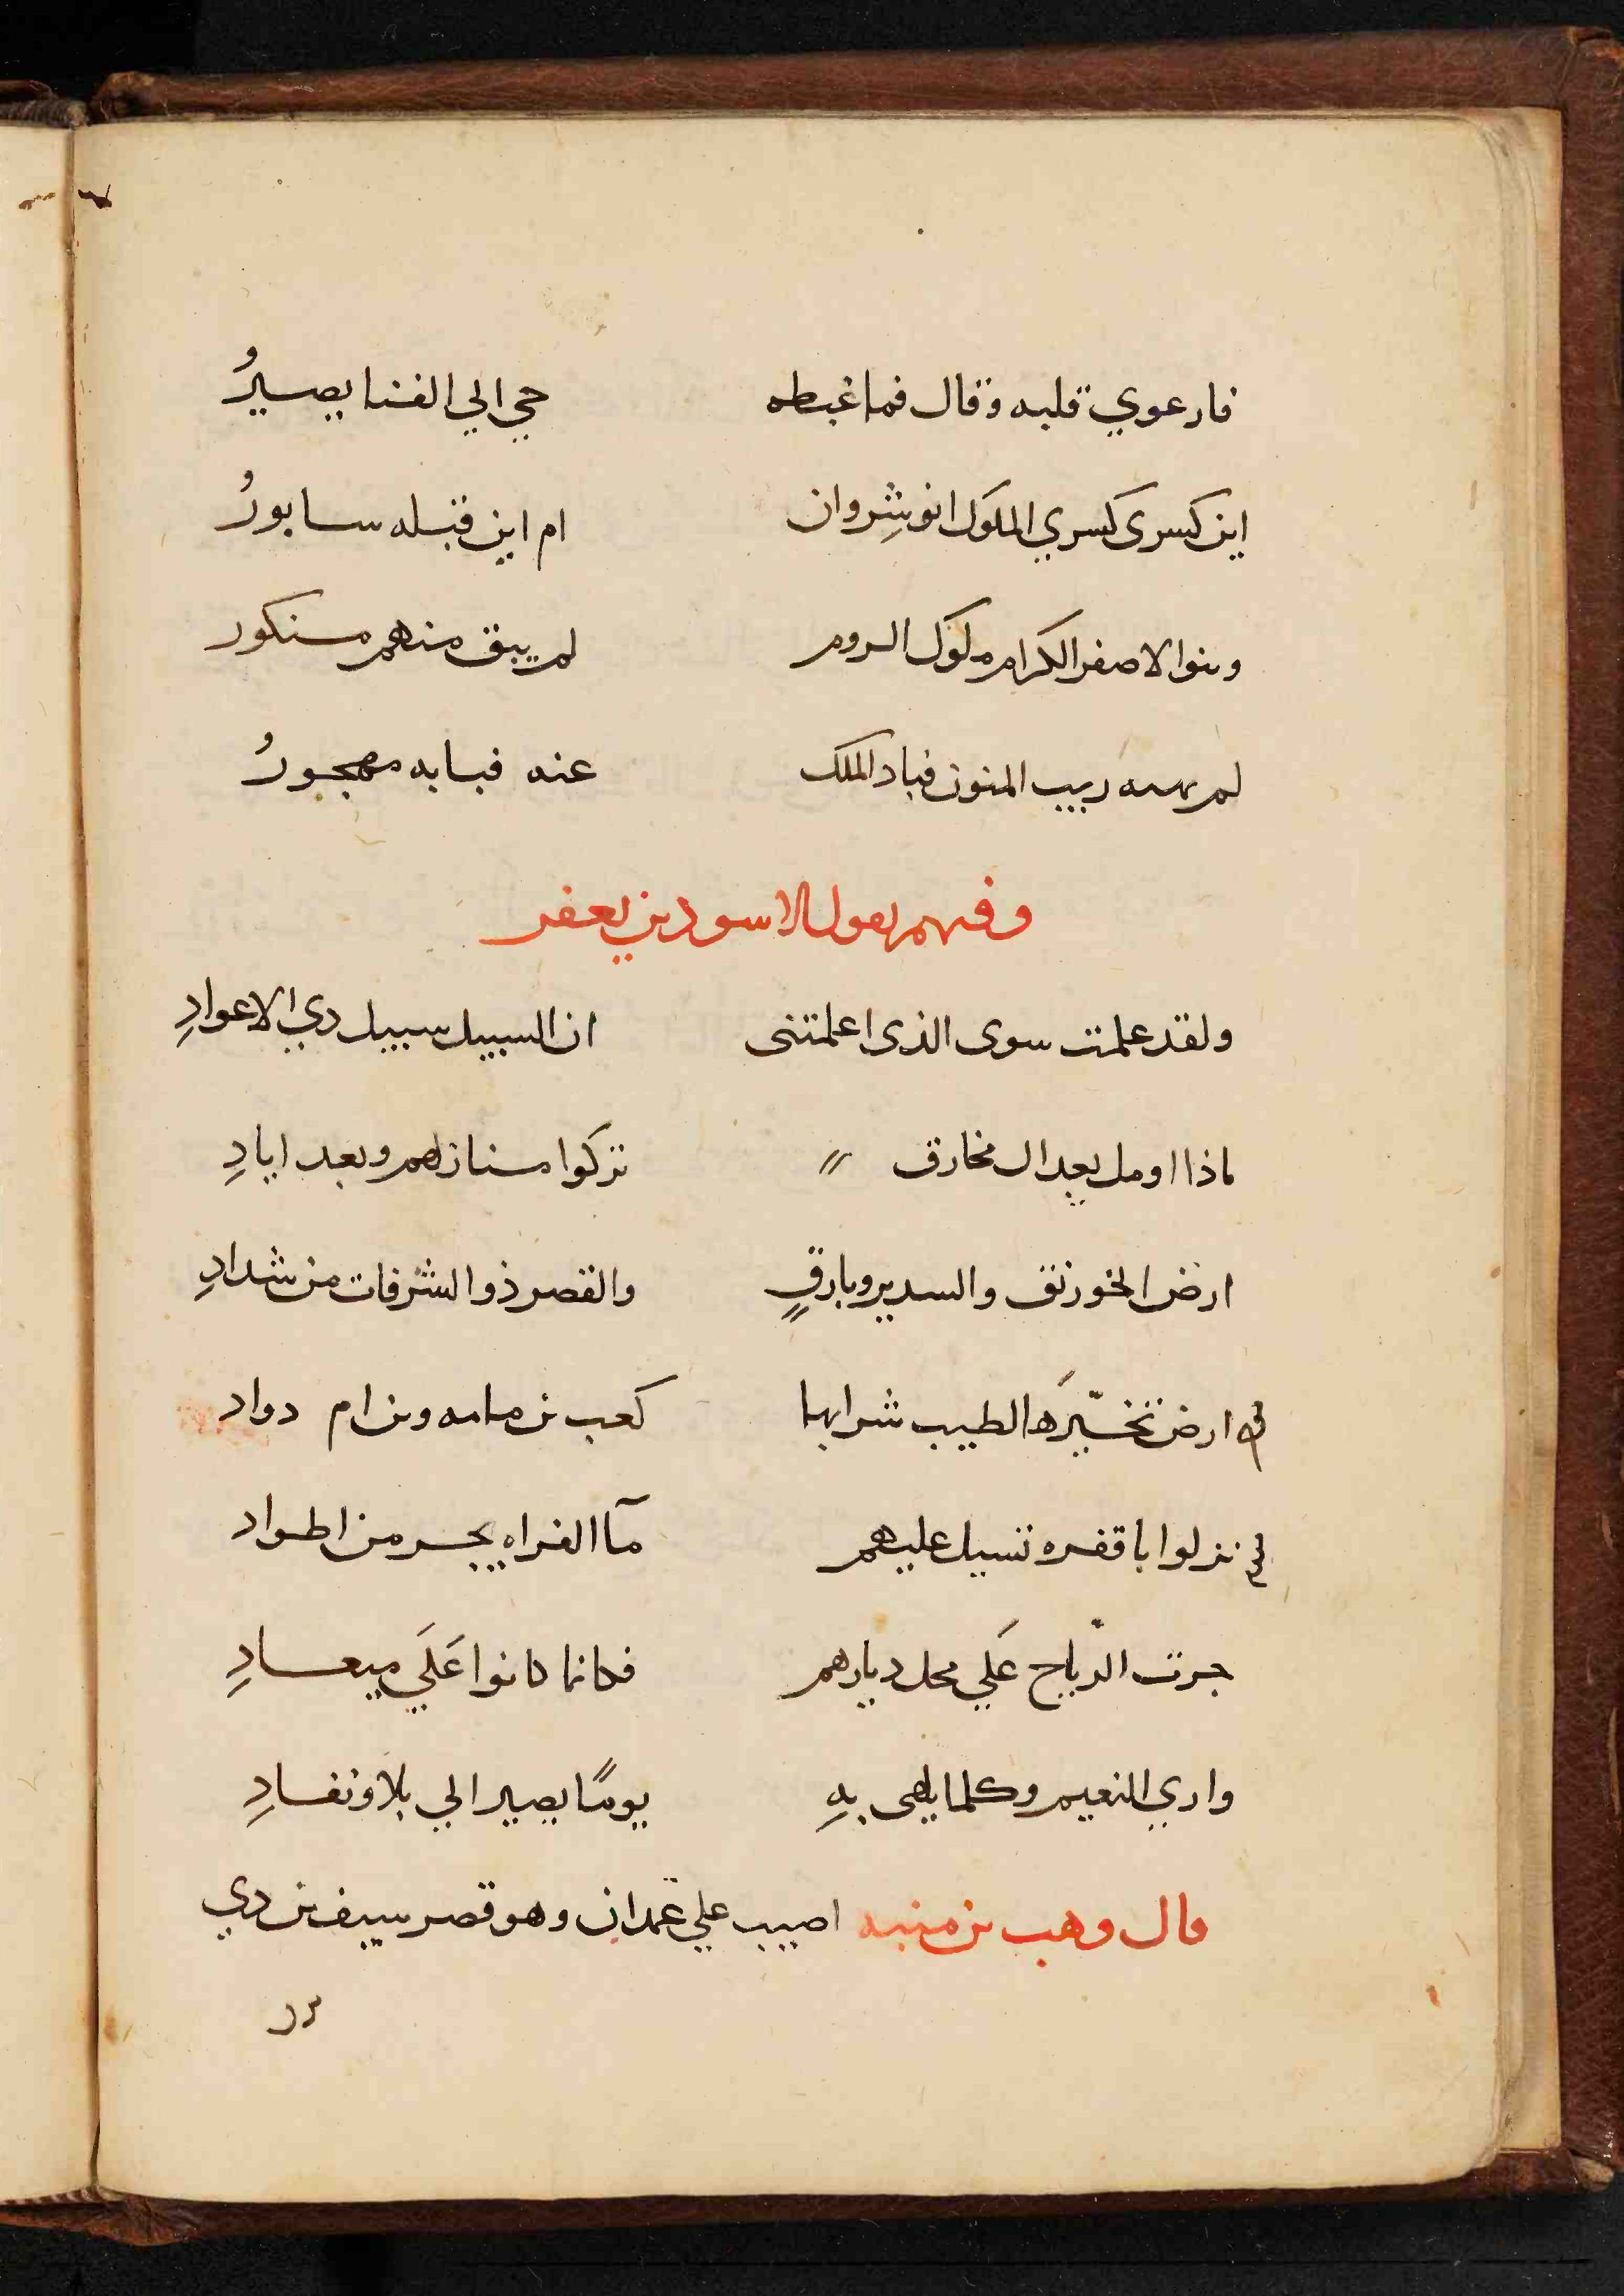 فارعوي قلبه وقال فما غبطه حي الي الفنا يصيرُ
اين كسرى كسري الملوك انوشِروان ام اين قبله سابورُ
وبنوا الاصفر الكرام ملوك الروم لم يبق منهم مذكور
لم يهبه ريب المنون فباد الملك عنه فبابه مهجورُ
وفيهم يقول الاسود بن يعفر
ولقد علمت سوى الذى اعلمتنى ان السبيل سبيل دي الاعوادِ
ماذا اومل بعد ال مخارق تركوا منازلهم وبعد ايادِ
ارض الخورنق والسدير وبارقٍ والقصر ذو الشرفات من شدادِ
ارض تخيّرَها لطيب شرابها كعب بن مامه وبن ام دواد
نزلوا باقفره تسيل عليهم مآ الفراه يجر من اطواد
جرت الرّياح عَلي محل ديارهم فكانما كانوا عَلَي ميعادِ
واري النعيم وكلما يلهى بهِ يومًا يصير الي بلا ونفادِ
قال وهب بن منبه اصيب علي غمدان وهو قصر سيف بن دي